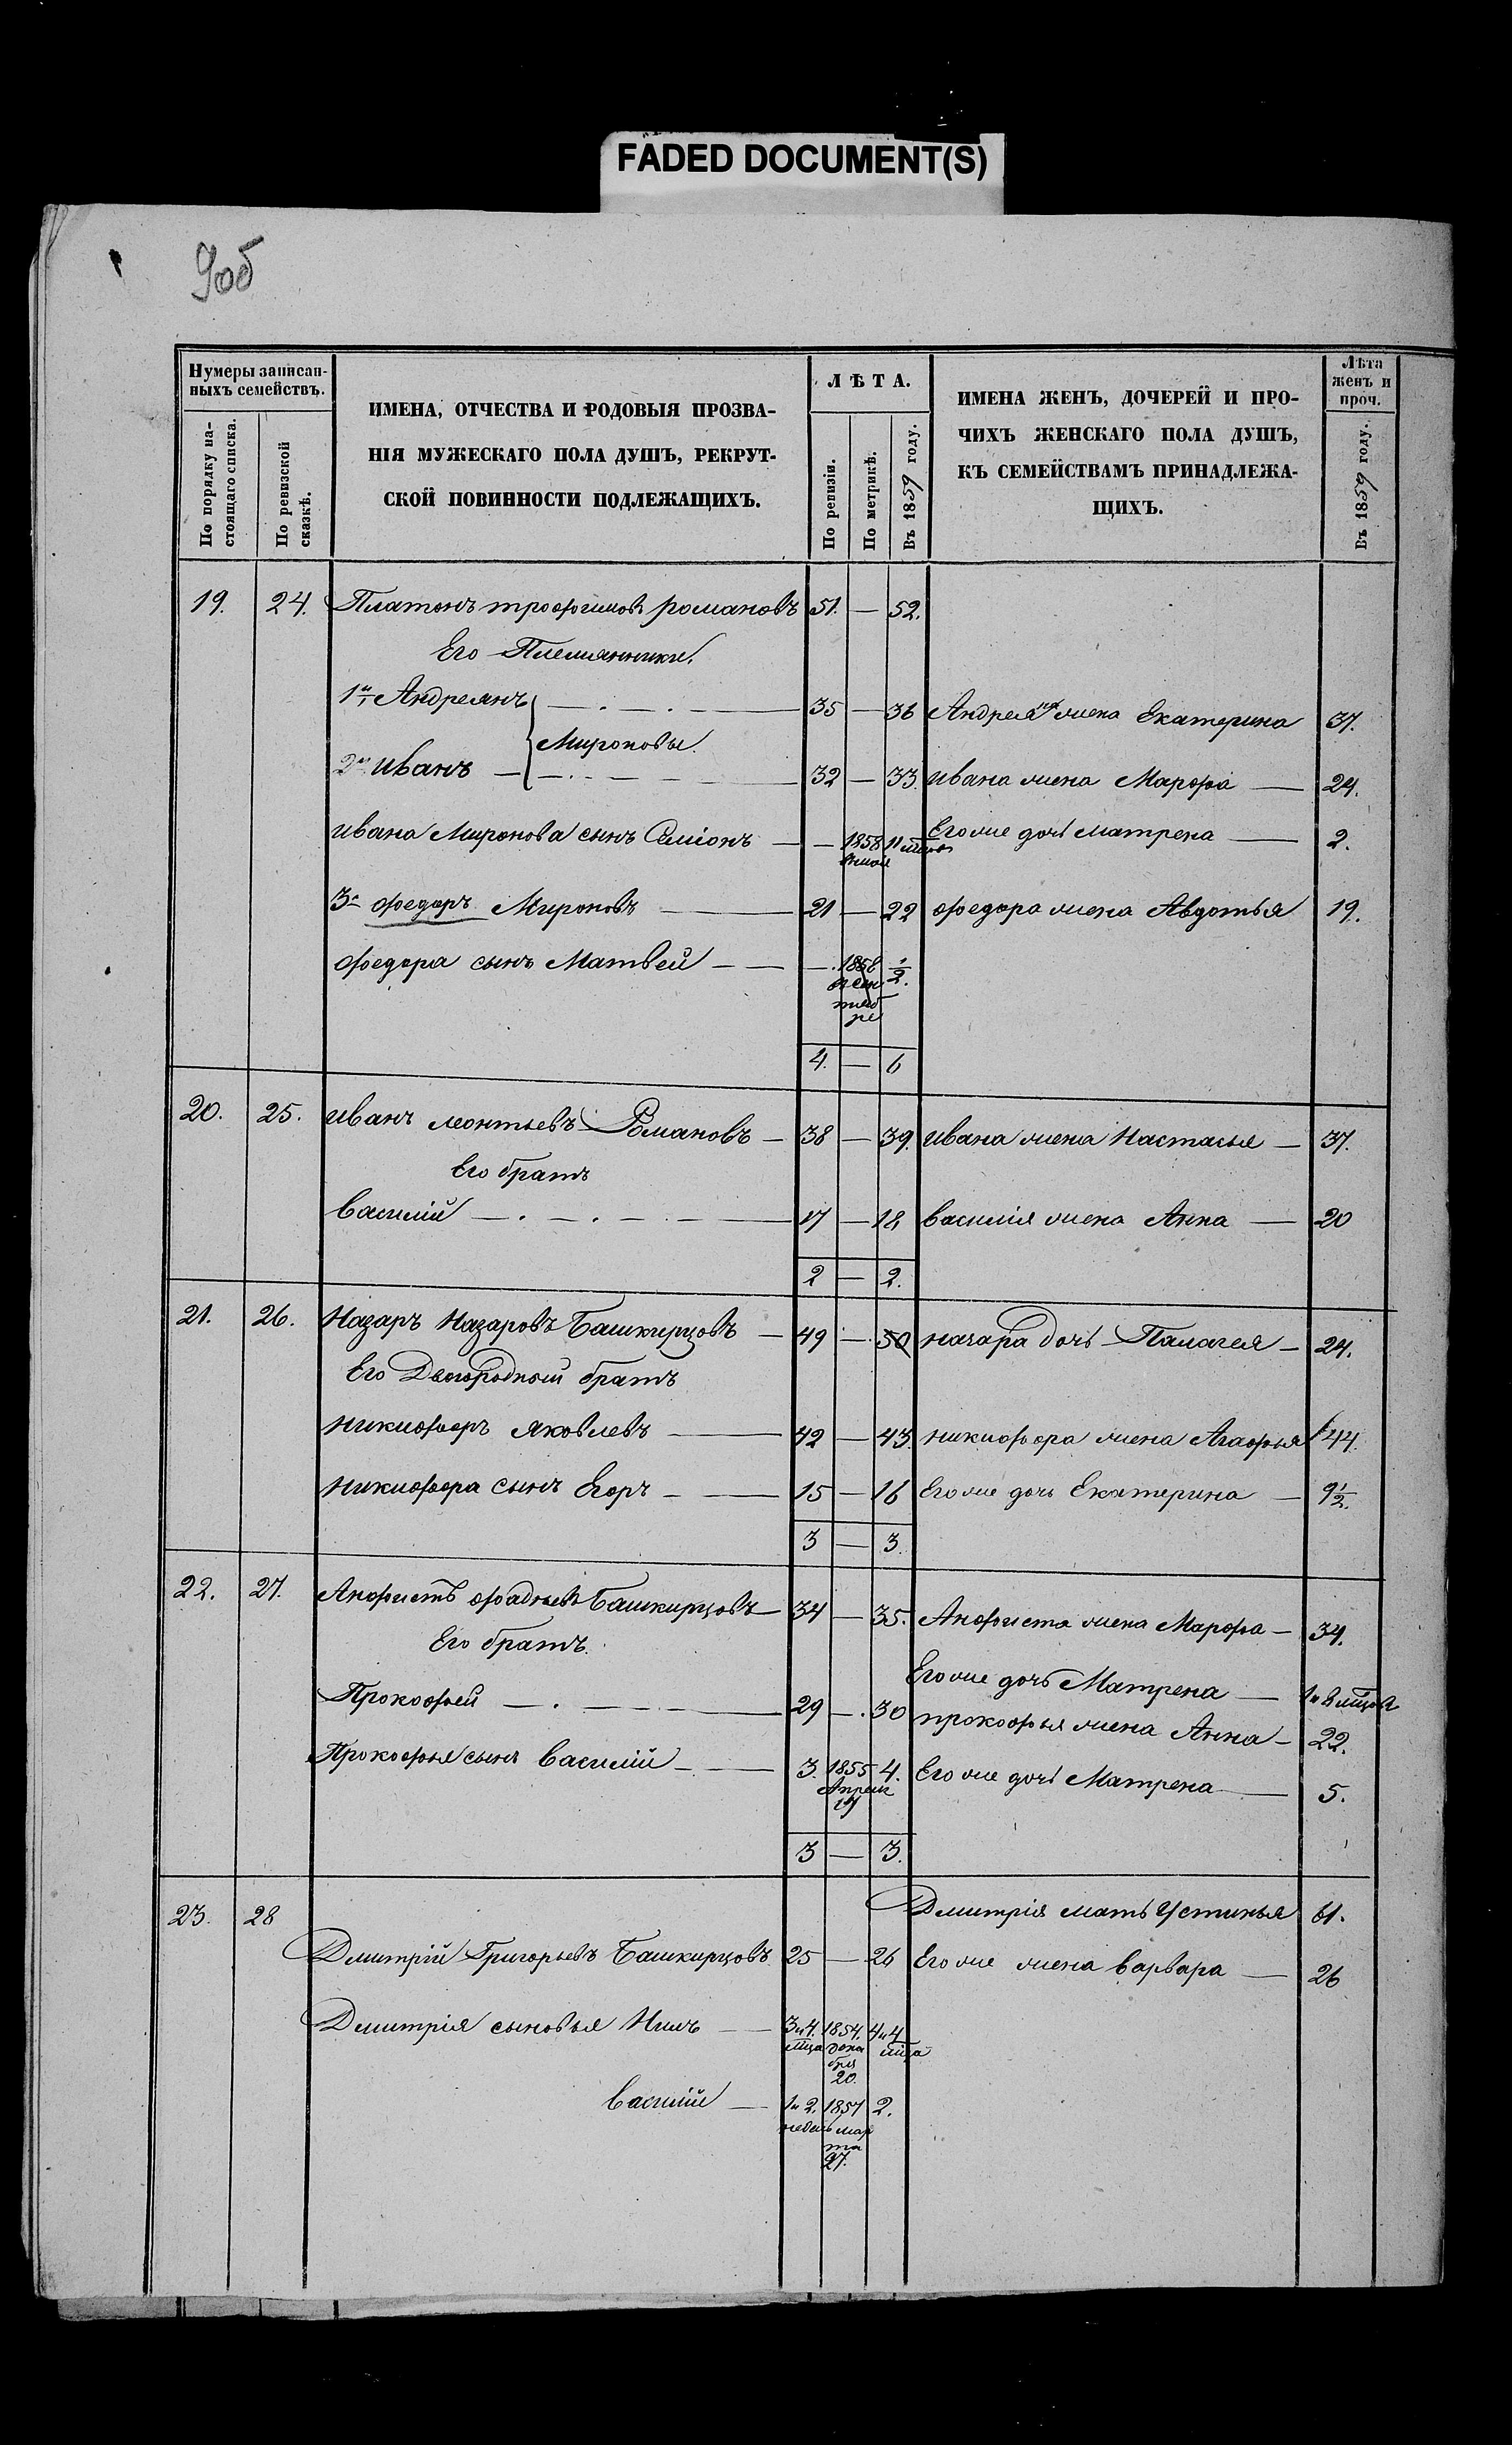 FADED DOCUMENT(S)
9об
Нумеры записан-
ныхъ семействъ.
По порядку на-
стоящаго списка.
По ревизской
сказкѣ.
ИМЕНА, ОТЧЕСТВА И РОДОВЫЯ ПРОЗВА-
НІЯ МУЖЕСКАГО ПОЛА ДУШЪ, РЕКРУТ-
СКОЙ ПОВИННОСТИ ПОДЛЕЖАЩИХЪ.
ЛѢТА.
По ревизіи.
По метрикѣ.
Въ 1859 году.
ИМЕНА ЖЕНЪ, ДОЧЕРЕЙ И ПРО-
ЧИХЪ ЖЕНСКАГО ПОЛА ДУШЪ,
КЪ СЕМЕЙСТВАМЪ ПРИНАДЛЕЖА-
ЩИХЪ.
Лѣта
женъ и
проч.
Въ 1859 году.
19. 24. Платонъ трофимовъ романовъ 51. — 52.
Его Племянники.
1й Андреянъ — . — . — 35 — 36 Андреяна жена Екатерина 37.
Мироновы.
2й иванъ — — . — 32 — 33. ивана жена Марфа — 24.
ивана Миронова сынъ Семіонъ — — 1858 11 мцовъ Его же дочь матрена — 2.
3й федоръ Мироновъ — 21 — 22 федора жена Авдотья 19.
федора сынъ Матвей — — — . 1858 1/2.
сен
тяб
ре
4. — 6
20. 25. иванъ леонтьевъ Романовъ — 38 — 39. ивана жена Настасья — 37.
Его братъ
василій — . — . — 17 — 18 василія жена Анна — 20
2 — 2.
21. 26. Назаръ Назаровъ Башкирцовъ — 49 — . 50 назара дочь Палагея — 24.
Его Двоюродной братъ
никифоръ яковлевъ — 42 — 43 никифора жена Агафья 44.
никифора сынъ Егоръ — — 15 — 16 Его же дочь Екатерина — 9 1/2.
3 — 3.
22. 27. Анфистъ фадѣевъ Башкирцовъ — 34 — 35. Анфиста жена Марфа — 34.
Его братъ.
Его же дочь Матрена — 1 и 8 мцовъ
Прокофей — . — 29 — . 30 прокофья жена Анна — 22.
Прокофья сынъ василій — — 3. 1855 4. Его же дочь Матрена — 5.
Апреля
17
3 — 3.
23. 28 Дмитрія мать Устинья 61.
Дмитрій Григорьевъ Башкирцовъ 25 — 26 Его же жена варвара — 26
Дмитрія сыновья Нилъ — 3 и 4. 1854. 4 и 4
мца дека мца
бря
20.
василій — 1 и 2. 1857 2.
недель мар
та
27.